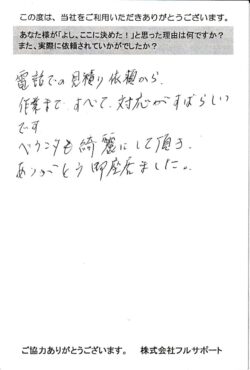 この度は、当社をご利用いただきありがとうございます。
あなた様が「よし、ここに決めた！」と思った理由は何ですか？
また、実際に依頼されていかがでしたか？
電話での見積り依頼から、
作業まですべて、対応がすばらしい
です
ベランダも綺麗にして頂き、
ありがとう御座居ました。
ご協力ありがとうございます。 株式会社フルサポート